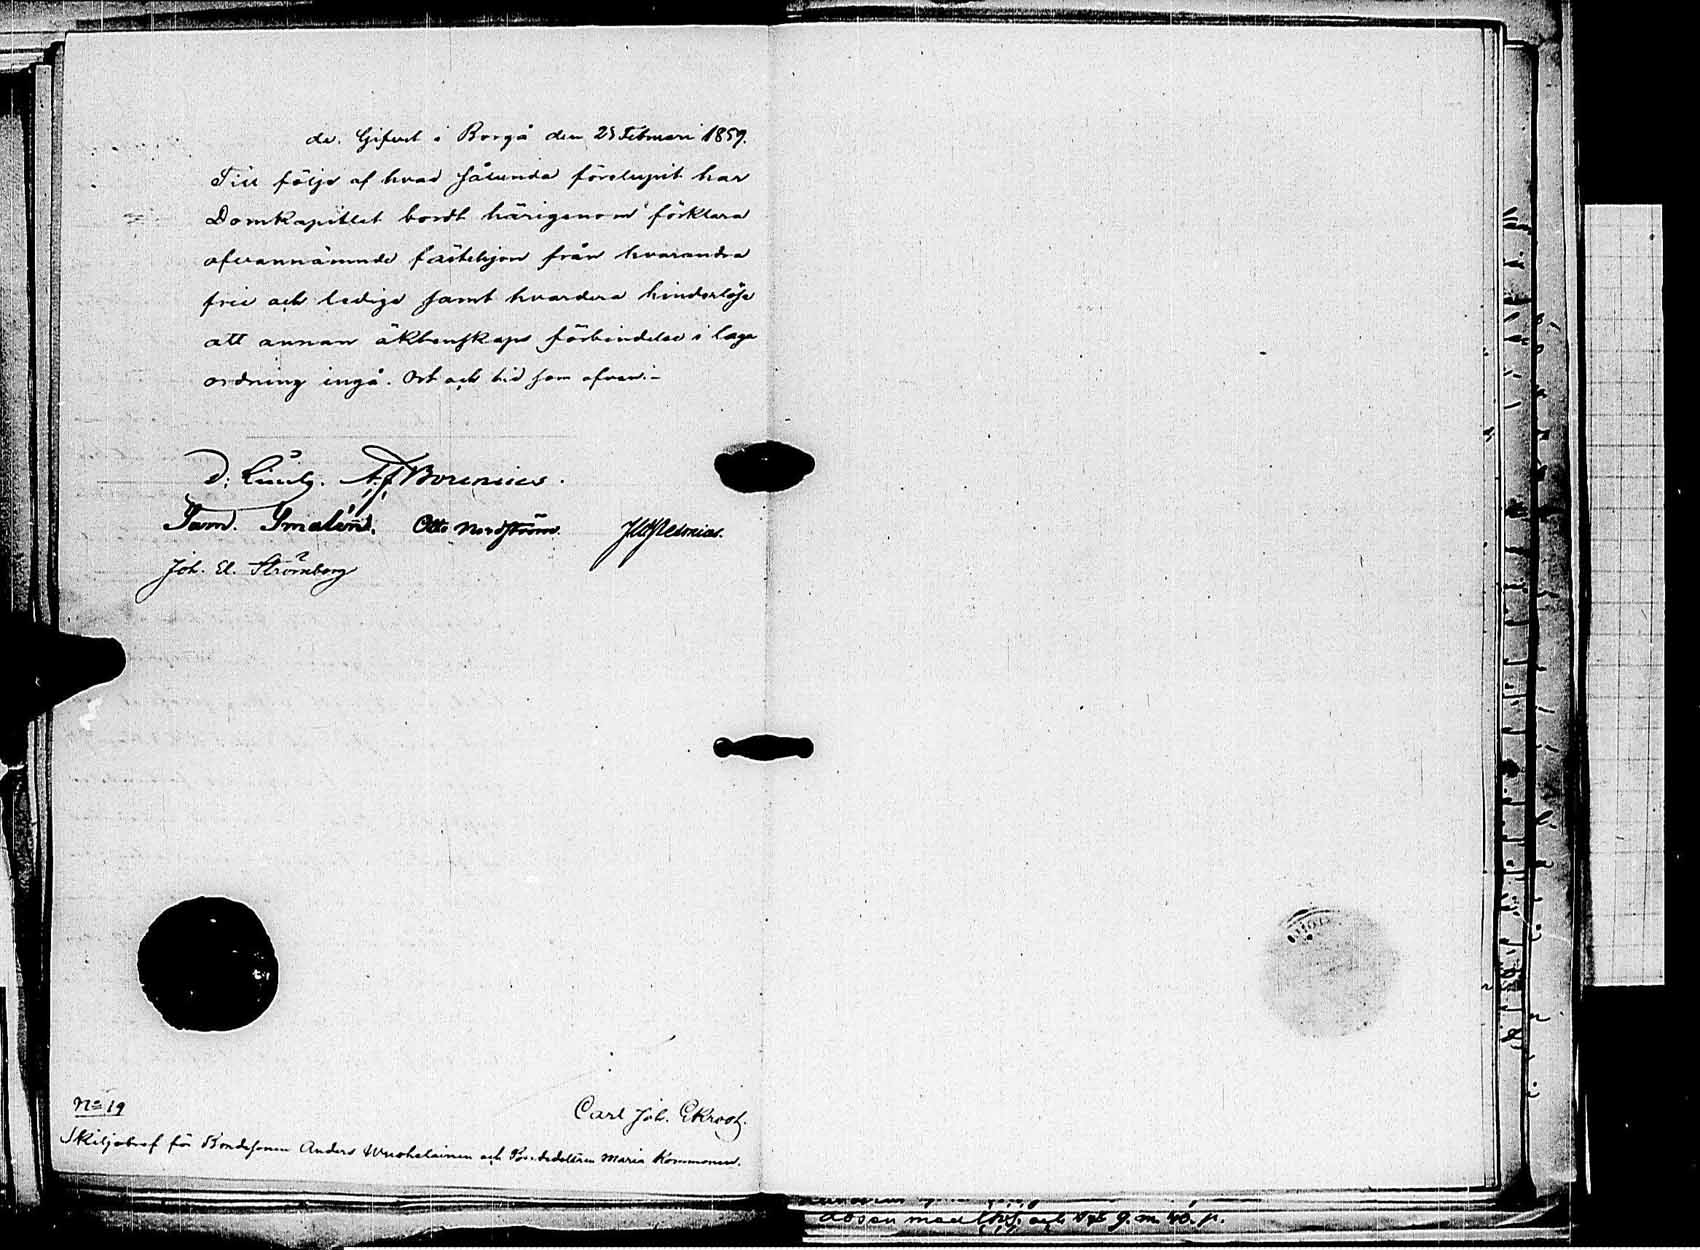 de. Gifvet i Borgå den 23 Februari 1859.
Till följe af hvad sålunda förelupit har
Domkapitlet bordt härigenom förklara
ofvannämnde fästehjon från hvarandra
frie och ledige samt hvardera hinderlöse
att annan äktenskaps förbindelse i laga
ordning ingå. Ort och tid som ofvan.—
A. J. Borenius.
Sam. Smalén. Otto Nordström.
Joh. El. Strömborg
No 19
Carl Joh. Ekroos.
Skiljobref för Bondesonen Anders Wuohelainen och Bondedottren Maria Kommonen.